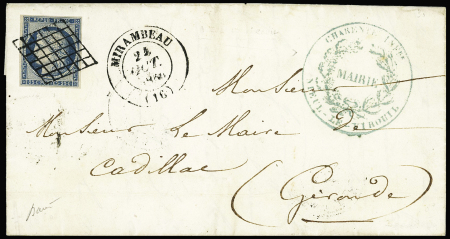 MIRAMBEAU
24
OCT.
(16)
CHARENTE INFRE
MAIRIE
Monsieur
Monsieur Le Maire de
Cadillac
(Gironde)